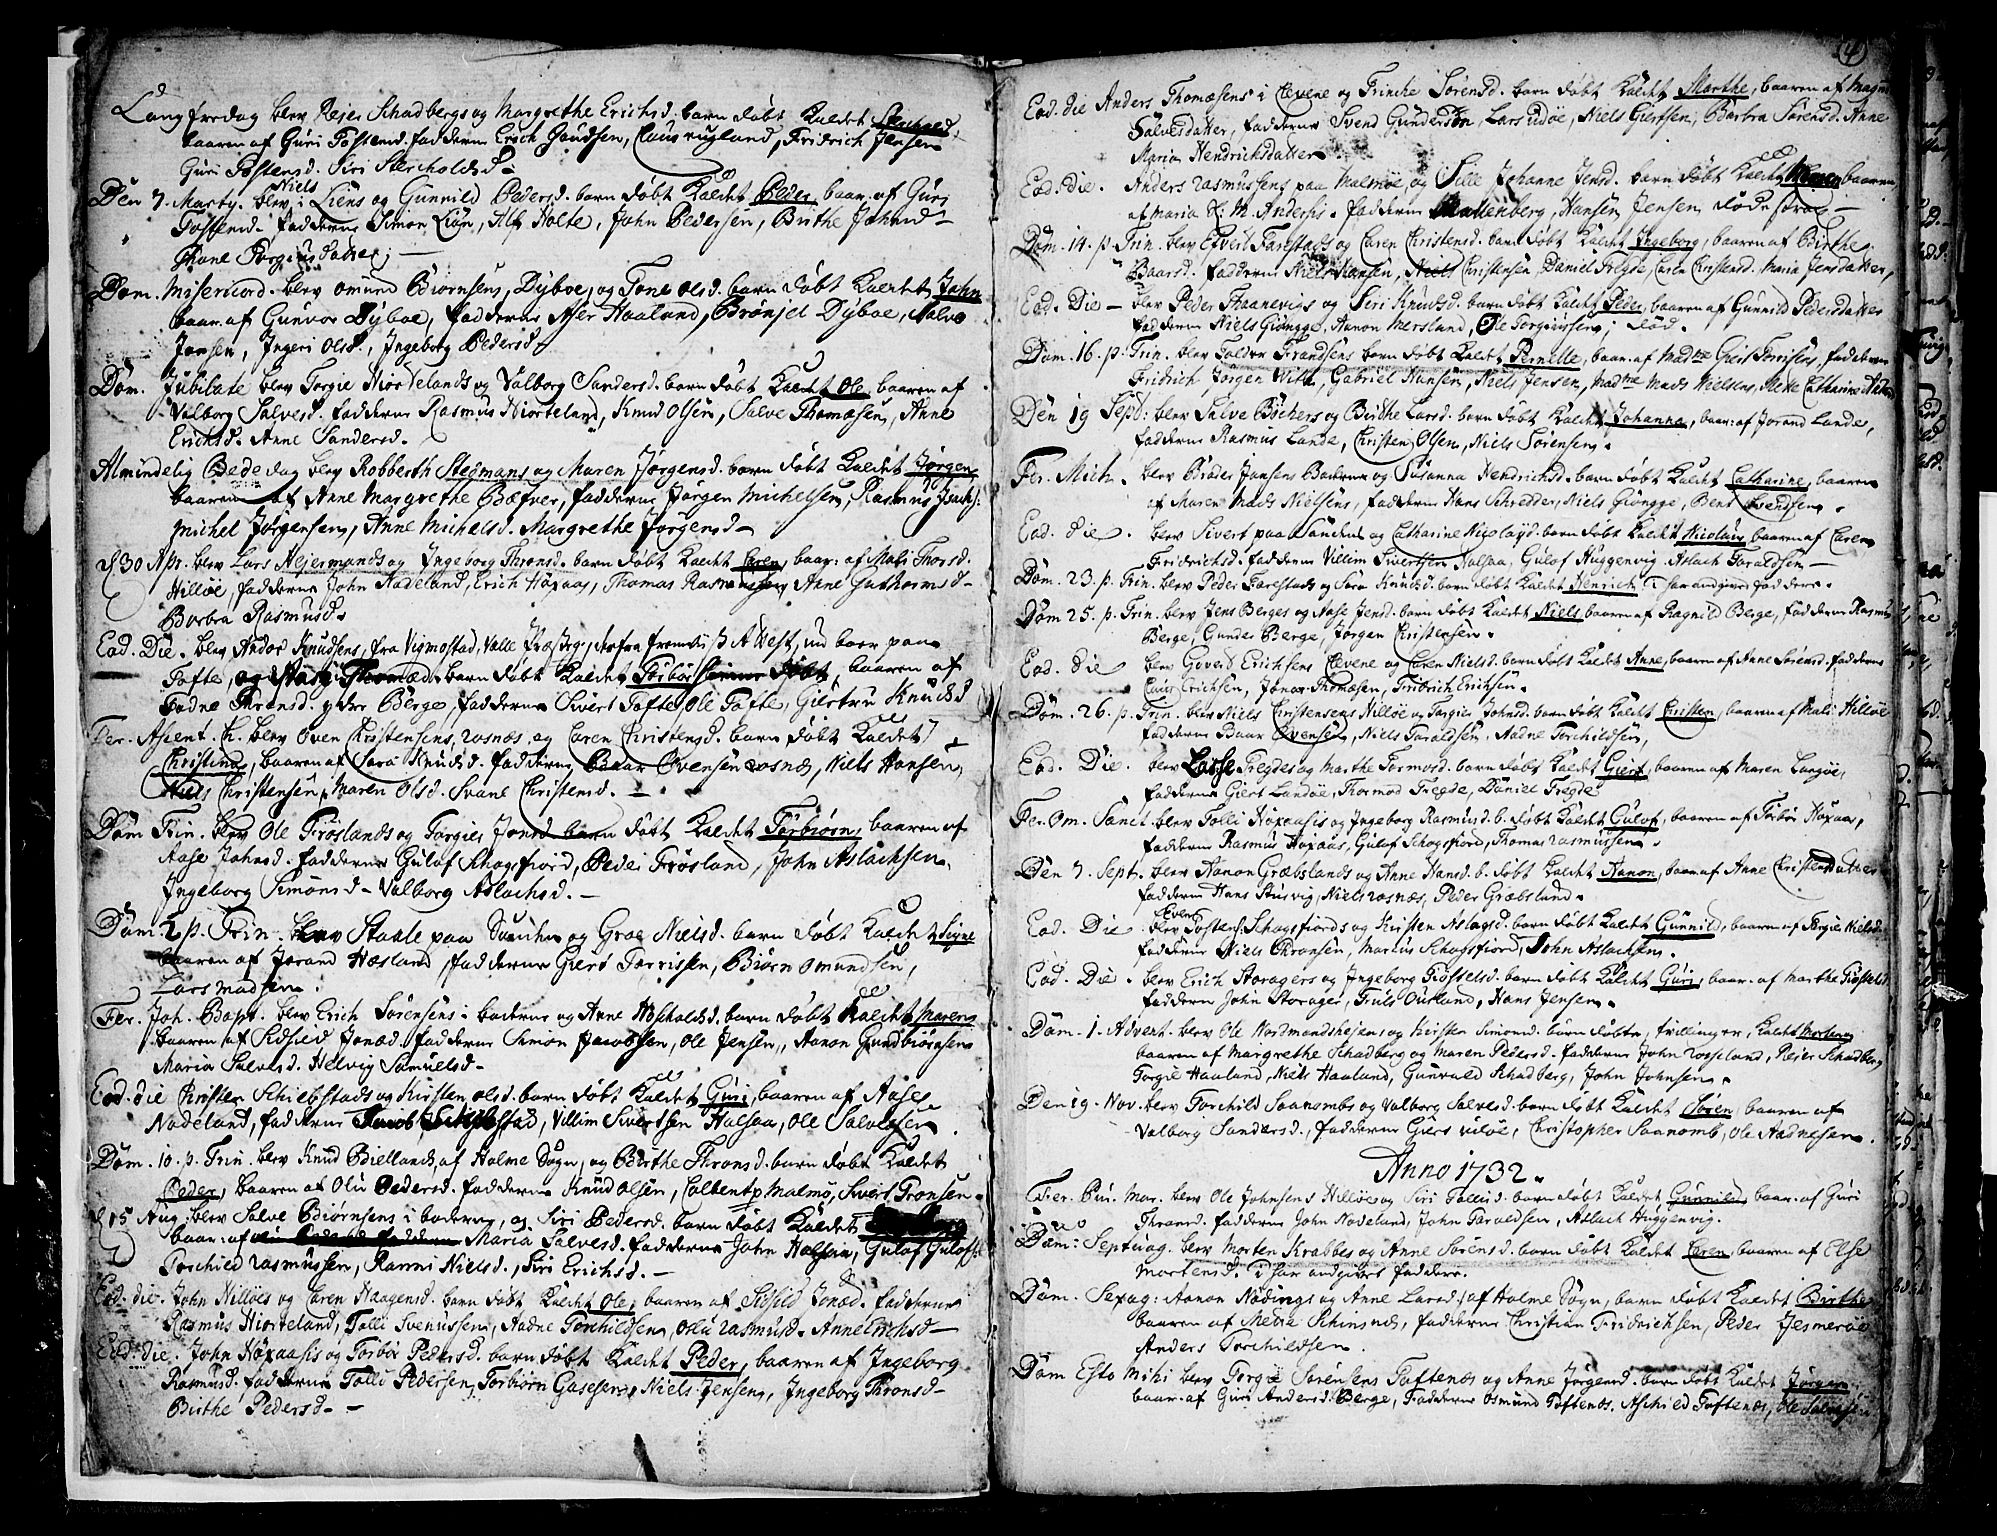 Langfredag blev Rejer Schadbergs og Margrethe Erichsd. barn døbt kaldet
baaren af Guri Tostensd. fadderne Erich Gundsen, Claus rugland, Fridrich Jensen
Guri Tostensd. Siri
Den 7. Marty. blev Niels Liens og Gunnild Pedersd. barn døbt kaldet Peder, baar. af Guri
Tostensd. fadderne Simon Lien, Alf Holte, John Pedersen, Birthe Johnsd.
Thone Torgiusdatter;
Dom. Misericord. blev omund Biørnsens, Dyboe, og Tone olsd. barn døbt kaldet John
baar. af Gunvor Dyboe, fadderne Asser Haaland, Brønjel Dyboe, Salve
Jansen, Ingeri Olsd., Ingeborg Pedersd.
Dom. Jubilate blev Torgie Hiortelands og Valborg Sandersd. barn døbt kaldet Ole, baaren af
Valborg Salvesd. fadderne Rasmus Hiorteland, Knud Olsen, Salve Thomæsen, Anne
Erichsd. Anne Sandersd.
Almindelig Bededag blev Robberth Stegmans og Maren Jørgensd. barn døbt kaldet Jørgen
baaren af Anne Margrethe Bæfver, fadderne Jørgen Michelsen, Rasmus Isachs.
Michel Jørgensen, Anne Michelsd. Margrethe Jørgensd.
d. 30 Apr. blev Lars og Ingeborg Thronsd. barn døbt kaldet Caren, baar. af Mali Thorsd.
Hilløe, fadderne John Nadeland, Erich Høxaas, Thomas Rasmussen, Anne Guthormsd.
Barbra Rasmusd.
Eod. Die. blev Andor Knudsens, fra Vigmostad, Valle
Tofte, og barn døbt kaldet baaren af
Aadne Thronsd. Berge, fadderne Sivert Tofte, Ole Tofte, Giertru Knudsd
Fer. Ascent. C. blev Oven Christensens, rosnæs, og Caren Christensd. barn døbt kaldet
Christina, baaren af Sara Knudsd. fadderne Baar Ovensen rosnæs, Niels Hansen,
Niels Christensen, Maren Olsd. Svane Christensd.
Dom. Trin. blev Ole Trøslands og Torgier Jonsd barn døbt kaldet Torbiørn, baaren af
Aase Johnsd. fadderne Gulof Schogsfiord, Peder Trøsland, John Aslachsen.
Ingeborg Simonsd - Valborg Aslachsd.
Dom. 2 p. Trin. blev Staale paa Sunden og Groe Nielsd. barn døbt kaldet Signe
baaren af Jorand Hæsland, fadderne Gierø Torrissen, Biørn omundsen,
Lars madsen.
Fer. Joh. Bapt. blev Erich Sørensens i baderne og Anne barn døbt kaldet Maren
baaren af Sidsied Jonæd. fadderne Simon Jacobsen, Ole Jensen, Aanon Gundbiørnsen
Maria Salvesd. Helvig Samuelsd -
Eod. die Christen Schiebstads og Kirsten olsd. barn døbt kaldet Guri, baaren af Aase
Nadeland, fadderne Jacob Schibstad, Villim Sivertsen Halsaa, Ole Salvesen.
Dom. 10. p. Trin. blev Knud Biellands, af Holme Sogn, og Birthe Thronsd. barn døbt kaldet
Peder, baaren af Olu Pedersd. fadderne Knud Olsen, Colbent p. Malmø, Sivert Tronsen.
d. 15 Aug. blev Salve Biørnsens i baderne, og Siri Pedersd. barn døbt kaldet
baar. af Maria Salvesd. fadderne John Halsaa, Gulof Gulofs.
Torchied rasmussen, Rannni Nielsd., Siri Erichsd. -
Eod. die. John Hilløes og Caren Haagensd. barn døbt kaldet Ole, baaren af Sidsild Jonæd. fadderne
Rasmus Hiorteland, Tolli Svenussen, Aadne Torchildsen, Olu rasmusd. Anne Erichsd -
Eod. die. John Høxaasis og Torbor Pedersd. barn døbt kaldet Peder, baaren af Ingeborg
Rasmusd. fadderne Tolli Pedersen, Torbiørn Gasesen, Niels Jensen, Ingeborg Thronsd -
Birthe Pedersd. -
4
Eod. die Anders Thomæsens i Clevene og Trinche Sørensd. barn døbt kaldet Marthe, baaren af Magn
Salvesdatter, fadderne Svend Gundersøn, Lars udøe, Niels Giertsen, Barbra Sørensd. Anne
Maria Hendrichsdatter.
Eod. Die. Anders rasmussens paa Malmøe og Sille Johanne Jensd. barn døbt kaldet Maren baaren
af Maria fadderne Mallenberg, Hansen, Jensen,
Dom. 14. p. Trin. blev Efverd Farestads og Caren Christensd. barn døbt kaldet Ingeborg, baaren af Birthe
Baarsd. fadderne Niels Hansen, Niels Christensen, Daniel Tregde, Caren Christensd. Maria Jensdatter,
Eod. Die - blev Peder Thaanevigs og Siri Knudsd. barn døbt kaldet Peder, baaren af Gunnild Pedersdatter
fadderne Niels Giøngge, Aanon Mersland, Ole Torgiussen; død.
Dom. 16. p. Trin. blev Tolder Frandsens barn døbt kaldet Pernille, baar. af Madme Giert Torrisens, fadderne
Fridrich Jørgen Witt, Gabriel Hansen, Niels Jensen, Madme Mads Nielsens, Mette Catharina
Den 19 Sept: blev Salve Bøchers og Birthe Larsd. barn døbt kaldet Johanna, baar. af Jorand Lande,
fadderne Rasmus Lande, Christen Olsen, Niels Sørensen.
Fer. Mich. blev Brodes Jansens Baderne og Susanna Hendrichsd. barn døbt kaldet Catharine, baaren
af Maren Mads Nielsens, fadderne Hans Schredder, Niels Giøngge, Bent Svendsen.
Eod. die. blev Sivert paa Sundens og Catharine Nicolaysd. barn døbt kaldet Nicolay, baaren af Caren
Fridrichsd. fadderne Villim Sivertsen Halsaa, Gulof Huggenvig, Aslach Taraldsen -
Dom. 23. p. Trin. blev Peder Farestads og Sara Knudsd. barn døbt kaldet Henrich, ej har angivet faddere.
Dom 25. p. Trin. blev Jens Berges og Aase Jensd. barn døbt kaldet Niels baaren af Ragnild Berge, fadderne Rasmus
Berge, Gunder Berge, Jørgen Christensen.
Eod. die blev Goverd Erichsens Clevene og Caren Nielsd. barn døbt kaldet Anne, baaren af Anne Sørensd. fadderne
Claus Erichsen, Jonas Thomæsen, Fridrich Erichsen.
Dom. 26. p. Trin. blev Niels Christensens Hilløe og Torgier Johnsd. barn døbt kaldet Christen, baaren af Mali Hilløe
fadderne Baar Ovensen, Niels Taraldsen, Aadne Torchildsen,
Eod. Die. blev Lasse Tregdes og Marthe Tormosd. barn døbt kaldet Giert, baaren af Maren Langøe,
fadderne Giert Landøe, Thormod Tregde, Daniel Tregde
Fer. Om. Sanct. blev Tolli Høxaasis og Ingeborg Rasmusd. b. døbt kaldet Gulof, baaren af Torbor Høxaas,
fadderne Rasmus Høxaas, Gulof Schogsfiord, Thomas rasmussen.
Den 7. Sept. blev Aanon Græbslands og Anne Hansd. b. døbt kaldet Aanon, baaren af Anne Christensdatter
fadderne Hans Stusvig, Niels rosnæs, Peder Græbsland.
Eod. Die blev Tosten Schogsfiords og Kirsten Aslagsd. barn døbt kaldet Gunnild, baaren af Torgier Nielsd.
fadderne Niels Thronsen, Marcus Schogsfiord, John Aslachsen.
Eod. Die. blev Erich Storagers og Ingeborg Tiøstelsd. barn døbt kaldet Guri, baar. af Marthe Tiøstelsd
fadderne John Storager, Truls Outland, Hans Jensen.
Dom. 1. Advent. blev Ole Nordmandshejens og Kirsten Simonsd. barn døbte, tvillinger, kaldet
baaren af Margrethe Schadberg og Maren Pedersd. fadderne John rosseland, Rejer Schadberg
Torgie Haaland, Niels Haaland, Gunvald Schadberg, John Johnsen.
Den 19. Nov. blev Torchild Saanombs og Valborg Salvesd. barn døbt kaldet Søren, baaren af
Valborg Sandersd., fadderne Giers Uiløe, Christopher Saanomb, Ole Aadnesen.
Anno 1732.
Fer. Pur. Mar. blev Ole Johnsens Hilløe og Siri Tollisd. barn døbt kaldet Gunnild, baar. af Guri
Thronsd. fadderne John Nadeland, John Taraldsen, Aslach Huggenvig.
Dom: Septuag. blev Morten Krabbes og Anne Sørensd. barn døbt kaldet Caren baaren af Else
Mortensd. ej har angivet faddere.
Dom. Sexag: Aanon Nødings og Anne Larsd. af Holme Sogn, barn døbt kaldet Birthe
baaren af Metta Schinsnæs, fadderne Christian Fridrichsen, Peder Jesmerøe
Anders Torchildsen.
Dom Esto Mihi blev Torgie Sørensens Toftenæs og Anne Jørgensd. barn døbt kaldet Jørgen
baar. af Guri Andersd. Berge, fadderne Osmund Toftenæs, Aschild Toftenæs, Ole Salvesen